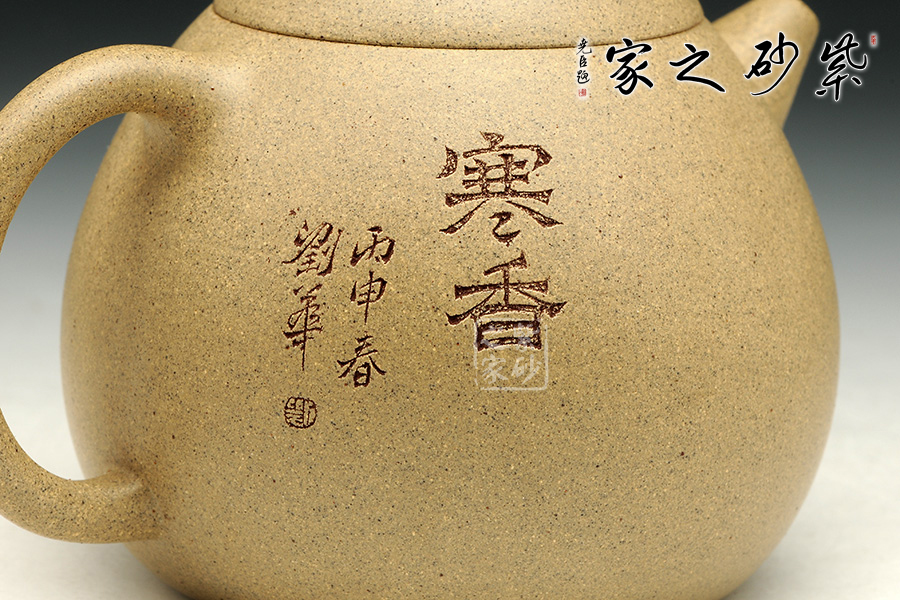 紫砂之家
尧臣题
寒香
丙申春
劉華